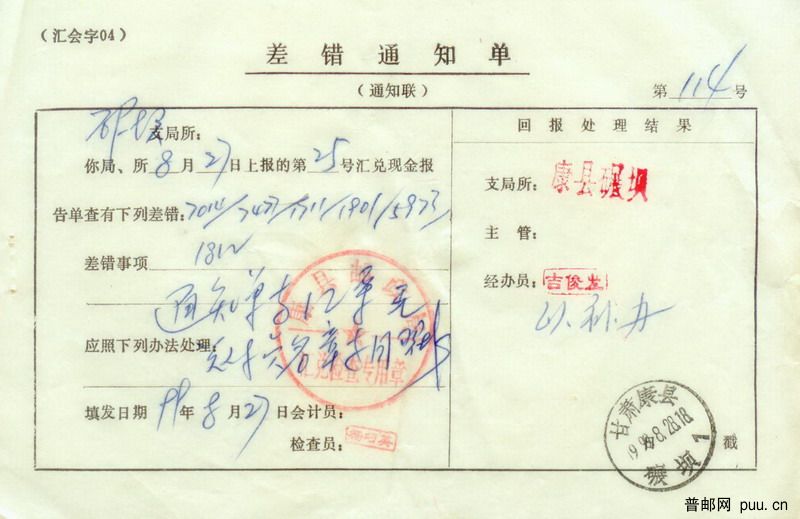 （汇会字04）
差错通知单
（通知联）
第114号
支局所：
你局、所8月27日上报的第25号汇兑现金报
告单查有下列差错：7014/7427/1711/1901/5973/
1812
差错事项
通知单
应照下列办法处理：
填发日期99年8月27日会计员：
检查员：
汇兑检查专用章
回报处理结果
支局所：康县碾坝
主管：
经办员：吉俊发
已补办
甘肃康县
1999.8.28.18
碾坝1
戳
普邮网 puu.cn